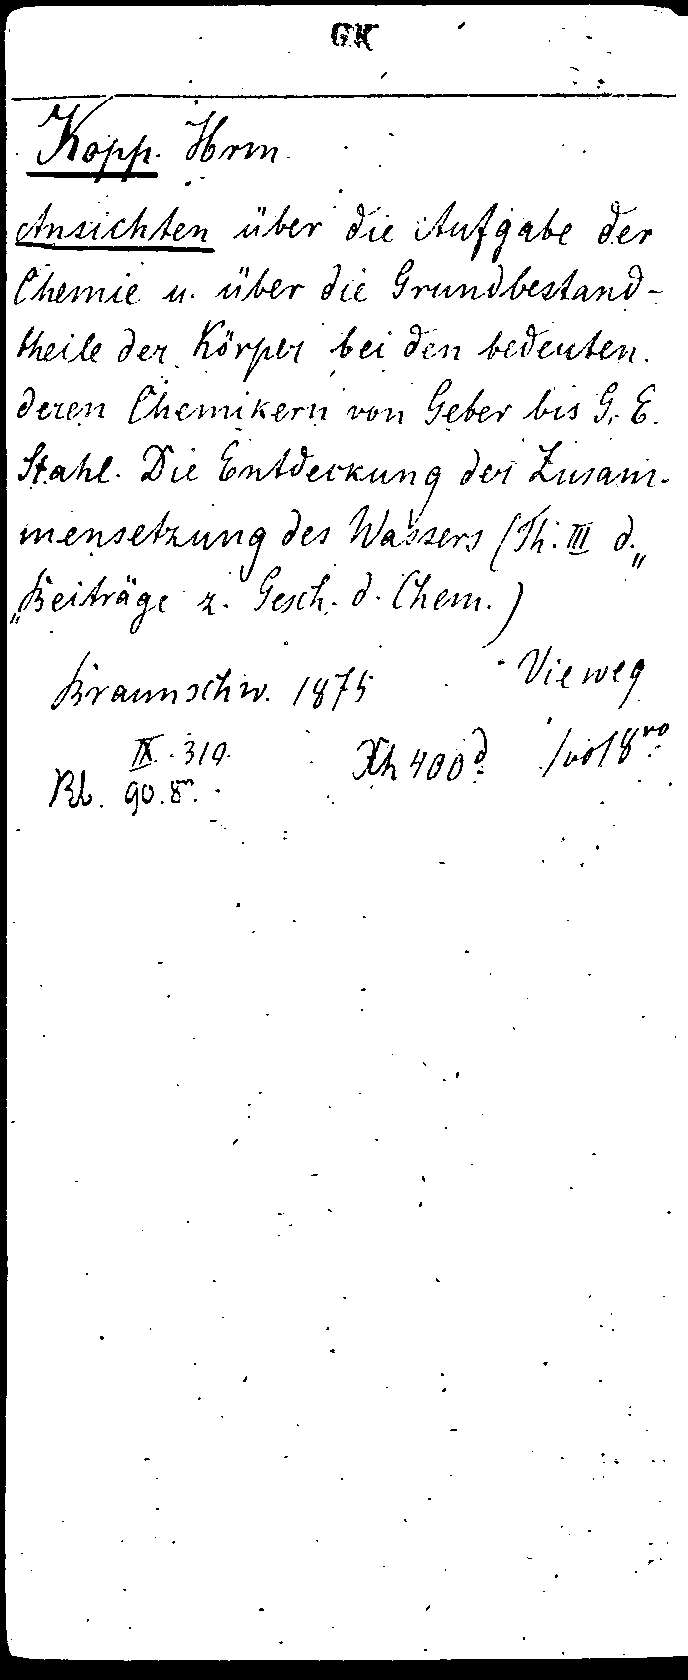 GK
Kopp. Hrm
Ansichten über die Aufgabe der
Chemie u. über die Grundbestand-
theile der Körper bei den bedeuten.
deren Chemikern von Geber bis G. E.
Stahl. Die Entdeckung der Zusam-
mensetzung des Wassers (Th. III d.„
„Beiträge z. Gesch. d. Chem.)
Braunschw. 1875 Vieweg
IX. 310. Xh 400 d. 1 vol 8vo
90.8